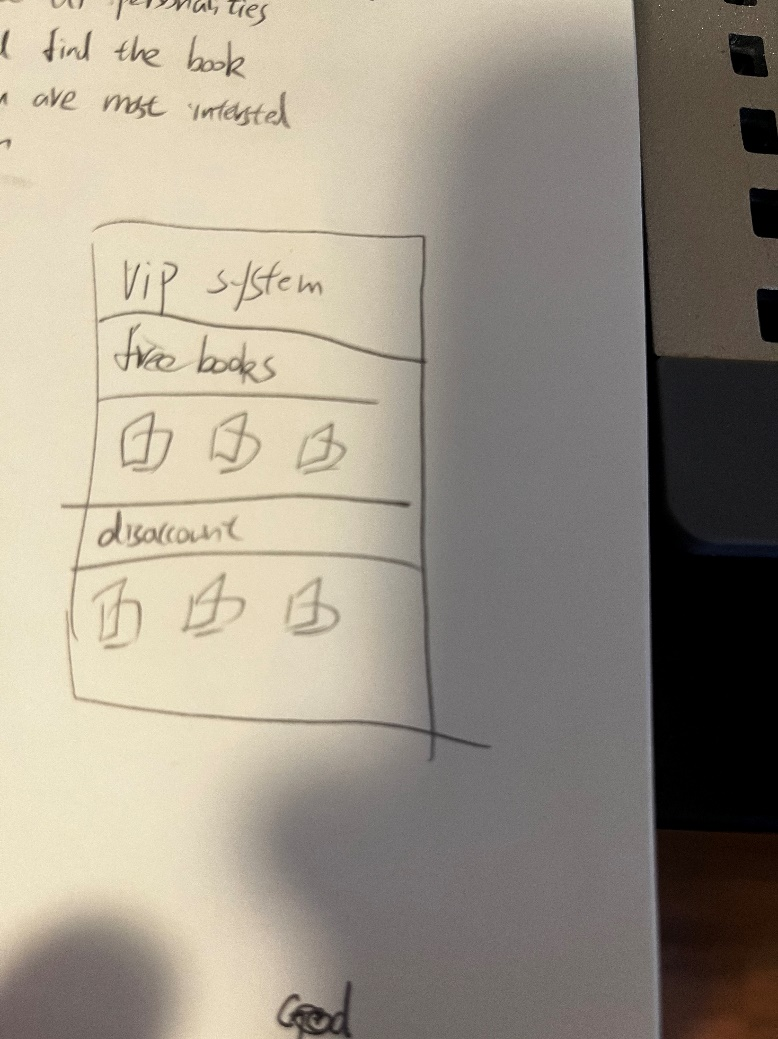 personalities
find the book
are most intersted
VIP system
free books
disaccount
Good